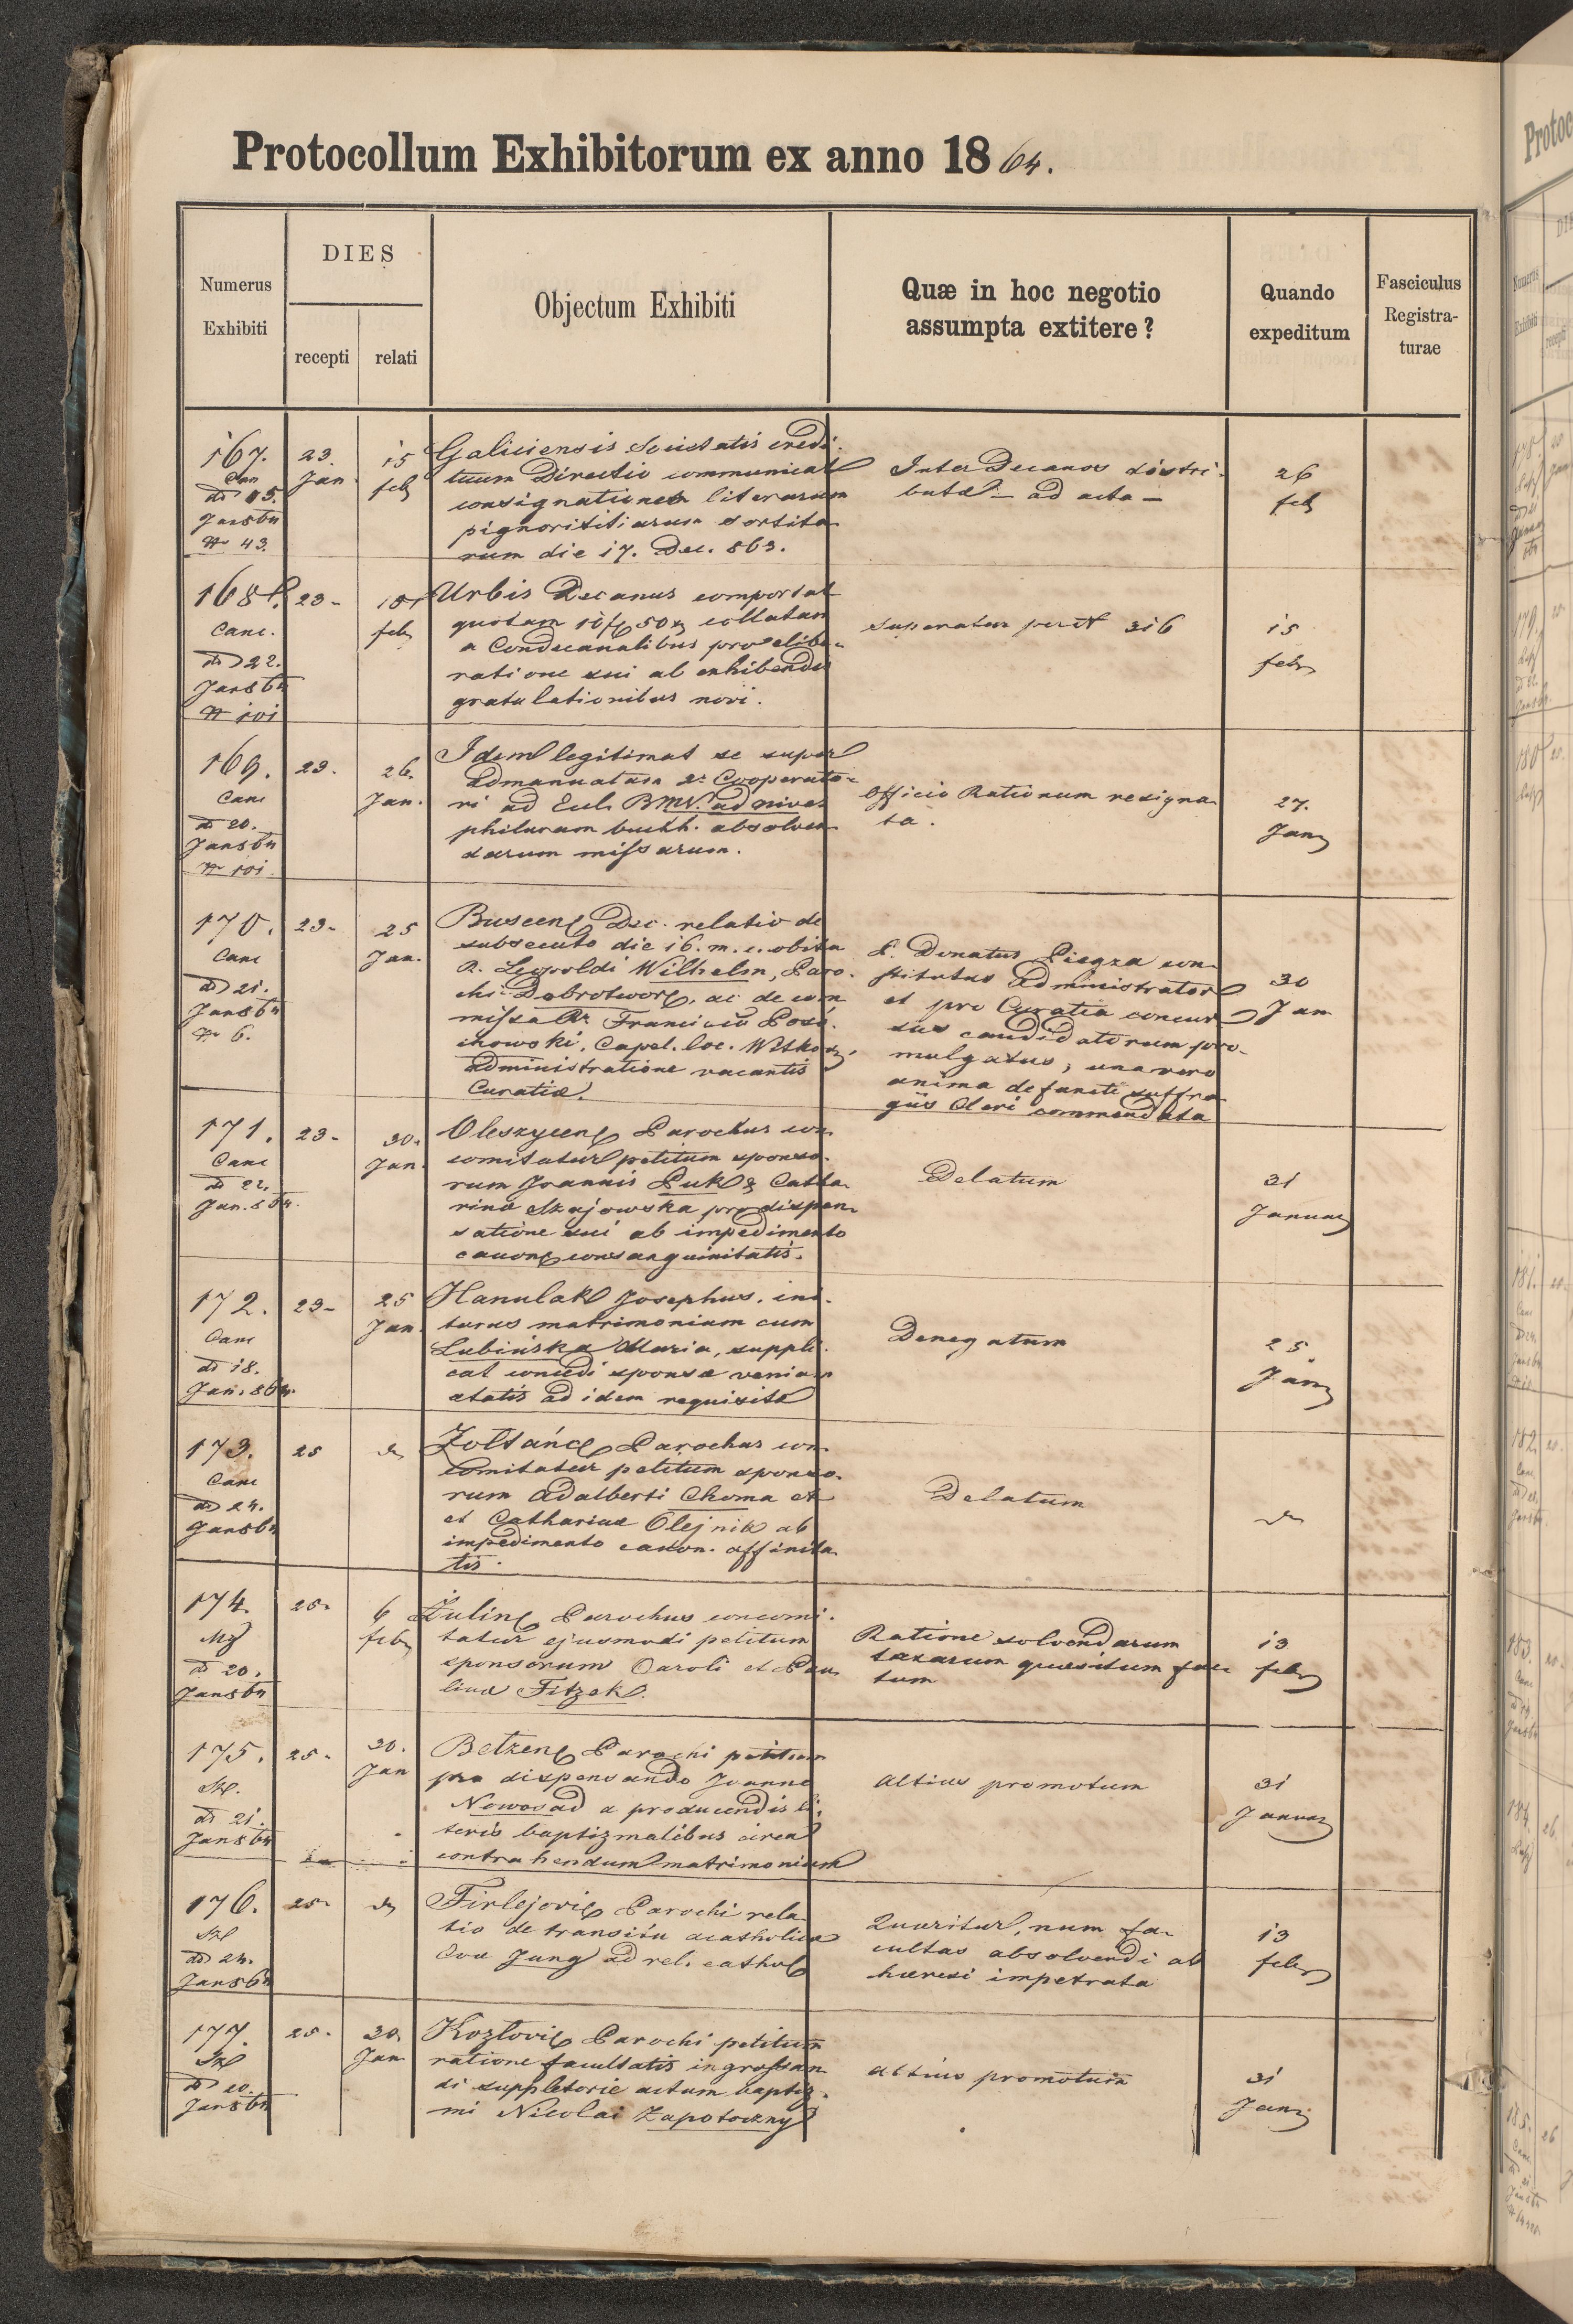 Protocollum Exhibitorum ex anno 1864.
Numerus
Exhibiti
DIES
recepti
relati
Objectum Exhibiti
Quæ in hoc negotio
assumpta extitere?
Quando
expeditum
Fasciculus
Registra-
turae
167.
Can
dd 15.
Jan 864
N 43.
23.
Jan
15
feb
Galiciensis Societatis credi-
tuum Directio communicat
consignationem literarum
pignorititiarum sortita-
rum die 17. Dec. 863.
Inter Decanos distri-
buta – ad acta –
26
feb
168.
Canc.
dd 22.
Jan 864
N 101
23-
15
feb
Urbis Decanus comportat
quotam 10 f 50 x collatam
a Condecanalibus pro elibe-
ratione sui ab exhibendis
gratulationibus novi.
superatur per N 316
15
feb
169.
Canc
dd 20.
Jan 864
N 101
23.
26.
Jan.
Idem legitimat se super
admanuatam 2. Cooperato-
ri ad Eccl. BMV. ad nives
philuram absolven-
darum missarum.
Officio Rationum resigna-
ta.
27.
Jan
170.
Canc
dd 21.
Jan 864
N 6.
23-
25
Jan.
Buscen Dec. relatio de
subsecuto die 16. m. c. obitu
R. Leopoldi Wilhelm, Paro-
chi Dobrotwor, ac de com
missa R Francisco Posó-
chowski, Capel. loc. Witkow,
administratione vacantis
Curatiæ.
P. Donatus Piegza con-
stitutus administrator
et pro Curatia concur-
sus candidatorum pro-
mulgatus, una vero
anima defuncti suffra-
giis Cleri commendata
30
Jan
171.
Canc
dd 22.
Jan. 864.
23-
30.
Jan.
Oleszycen Parochus con-
comitatur petitum sponso-
rum Joannis Puk & Catha-
rinæ Szajowska pro dispen-
satione sui ab impedimento
canon consanguinitatis.
Delatum
31
Januar
172.
Canc
dd 18.
Jan. 864.
23-
25
Jan.
Hanulak Josephus, ini-
turus matrimonium cum
Lubińska Maria, suppli-
cat concedi sponsæ veniam
ætatis ad idem requisita
Denegatum
25
Jan
173.
Canc
dd 24.
Jan 864
25
Żołtańc Parochus con-
comitatur petitum sponso-
rum Adalberti Choma et
et Catharinæ Olejnik ab
impedimento canon. affinita-
tis.
Delatum
174.
dd 20.
Jan 864
25.
6
feb
Żulin Parochus concomi-
tatur ejusmodi petitum
sponsorum Caroli et Pau-
linæ Fitzek.
Ratione solvendarum
taxarum quæsitum fac-
tum
13
feb
175.
dd 21.
Jan 864
25.
30.
Jan
Betzen Parochi petitum
pro dispensando Joanne
Nowosad a producendis li-
teris baptizmalibus circa
contrahendum matrimonium
Altius promotum
31
Januar
176.
dd 24.
Jan 864
25.
Firlejovi Parochi rela-
tio de transitu acatholicæ
Evæ Jung ad rel. cathol
Quæritur, num fa-
cultas absolvendi ab
hæresi impetrata
13
feb
177.
dd 20.
Jan 864
25.
30.
Jan
Kozlovi Parochi petitum
ratione facultatis ingrossan-
di suppletorie actum baptiz-
mi Nicolai Zapotoczny
altius promotum
31
Jan